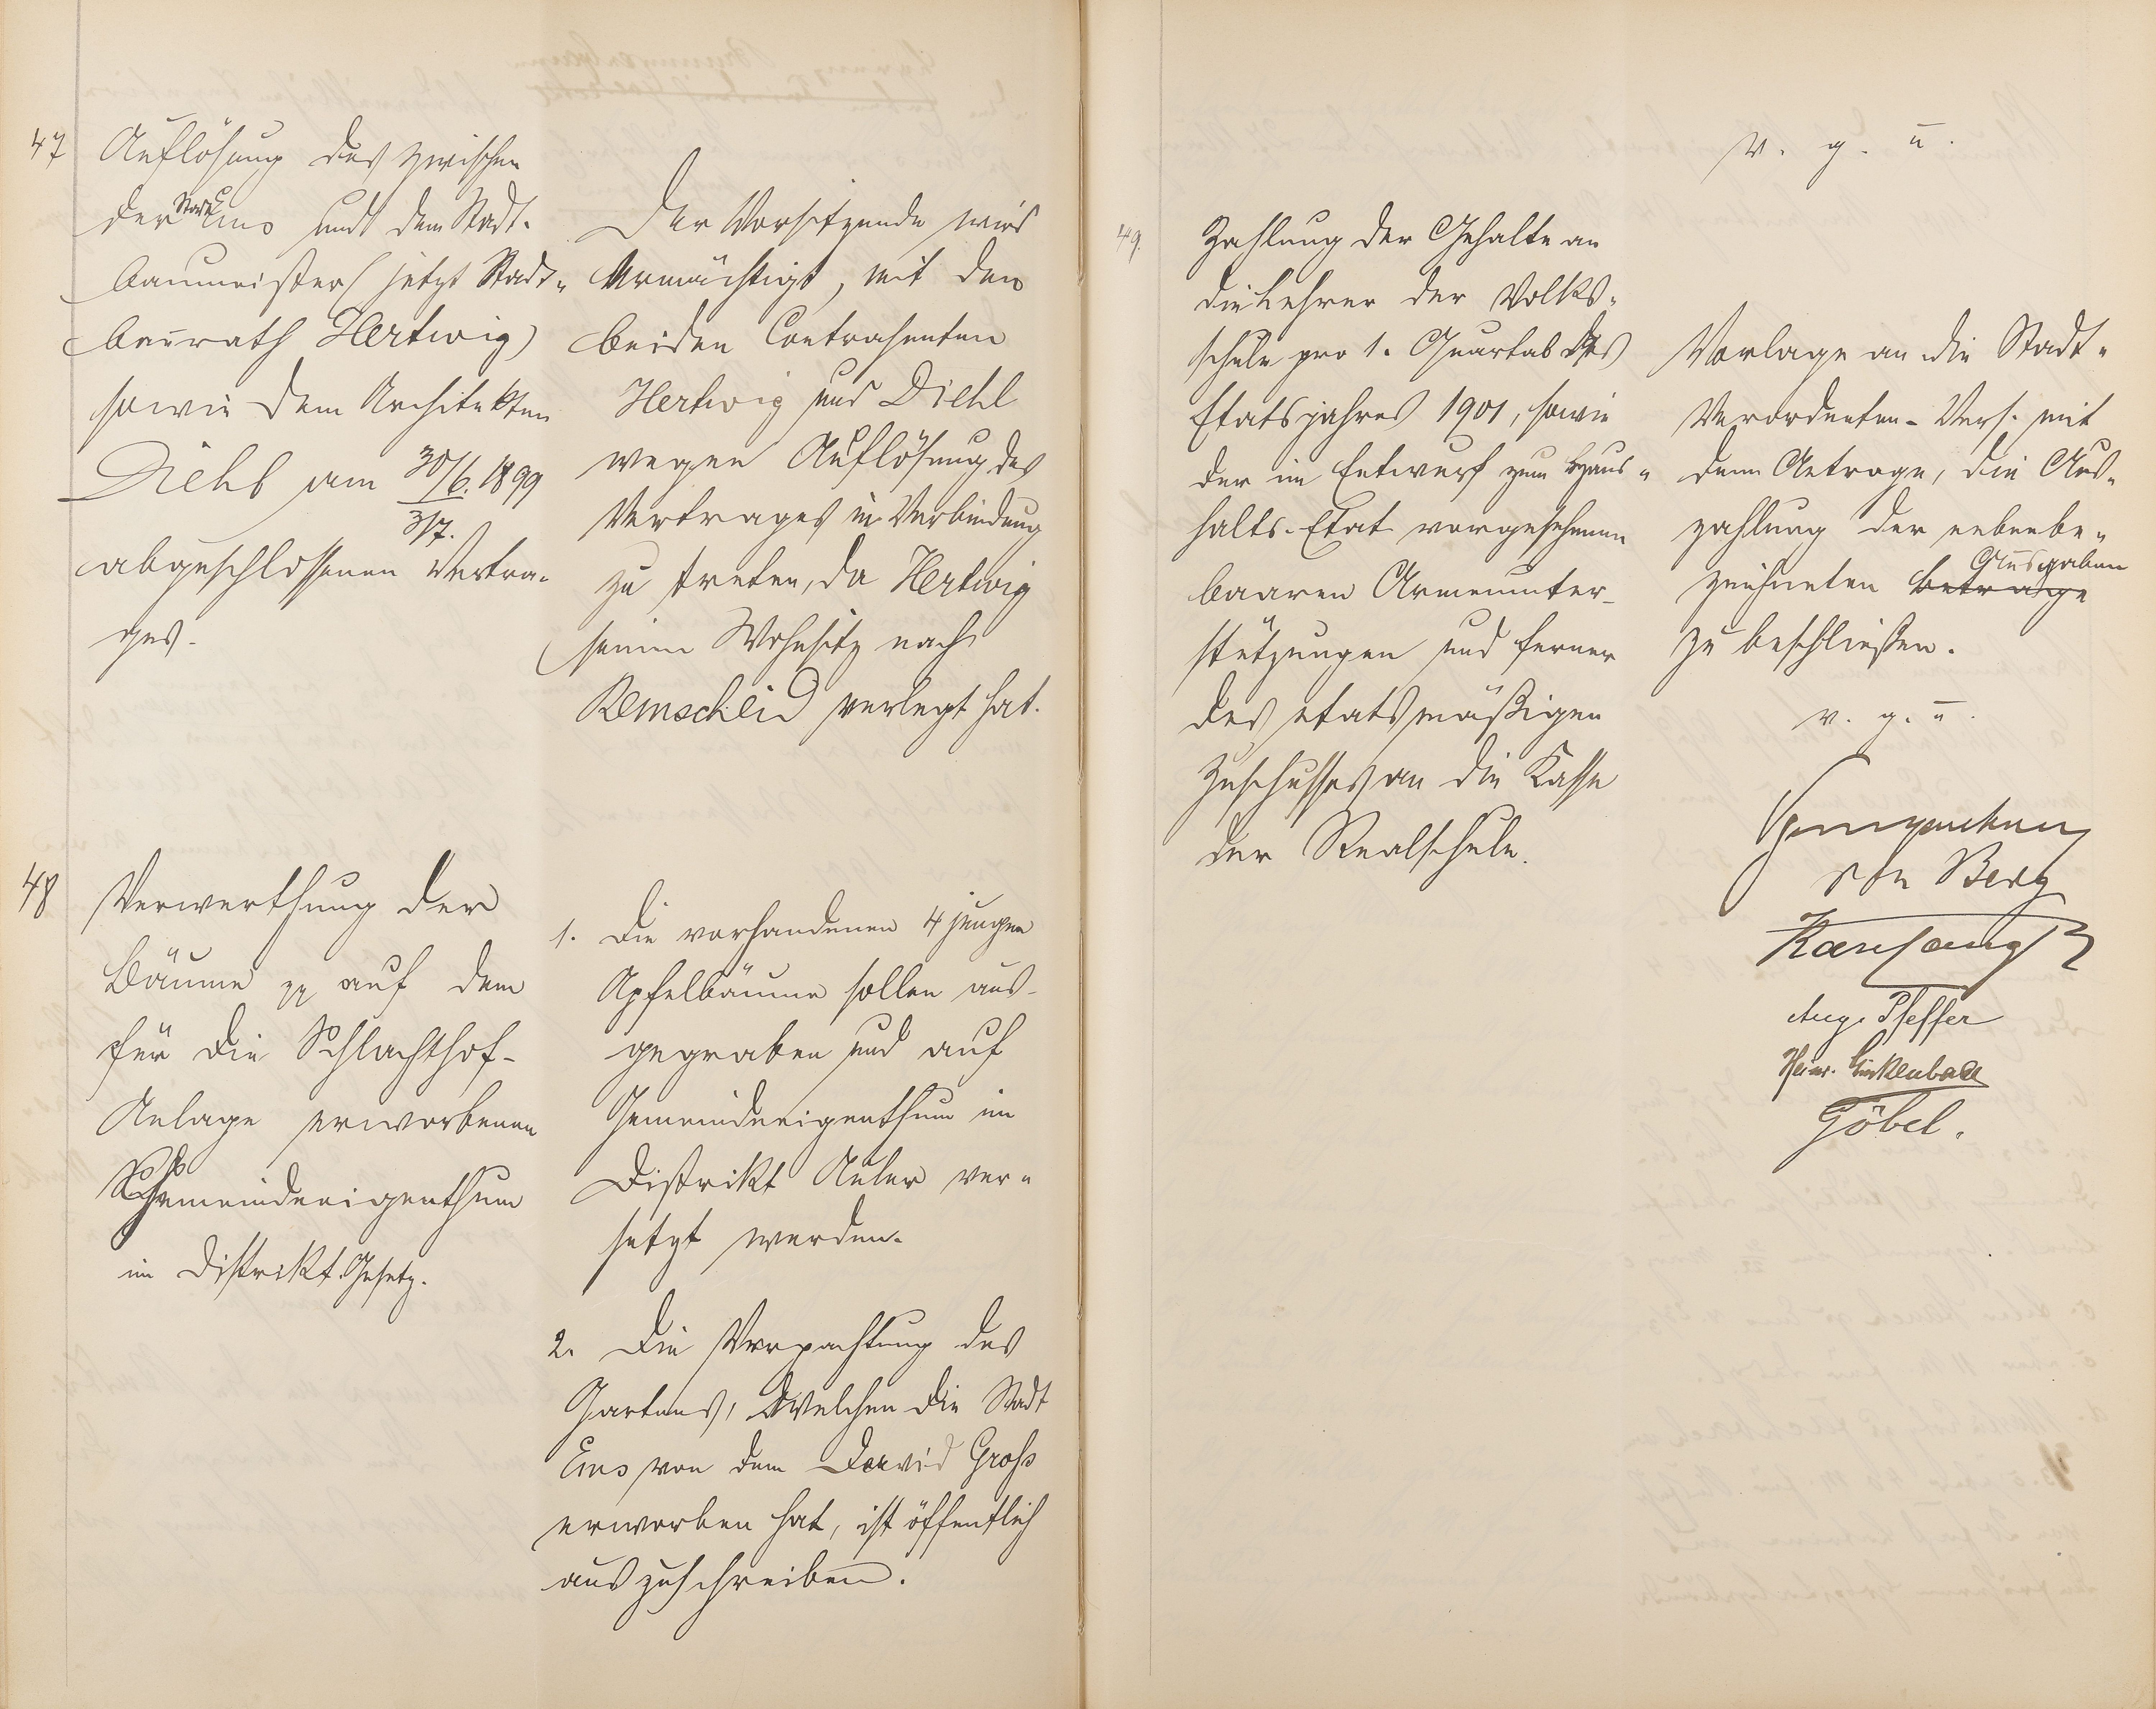 47
Auflösung des zwischen
der Stadt Ems und dem Stadt-
baumeister (jetzt Stadt-
baurath Hertwig)
sowie dem Architekten
Diehl am 30/6. 1899
3/7.
abgeschlossenen Vertra-
ges.
Der Vorsitzende wird
ermächtigt, mit den
beiden Contrahenten
Hertwig und Diehl
wegen Auflösung des
Vertrages in Verbindung
zu treten, da Hertwig
seinen Wohnsitz nach
Remscheid verlegt hat.
48
Verwerthung der
Bäume pp auf dem
für die Schlachthof-
Anlage erworbenen
Gemeindeeigenthum
im Distrikt Gesetz.
1. Die vorhandenen 4 jungen
Apfelbäume sollen aus-
gegraben und auf
Gemeindeeigenthum im
Distrikt Auler ver-
setzt werden.
2. Die Verpachtung des
Gartens, welchen die Stadt
Ems von dem David Groß
erworben hat, ist öffentlich
auszuschreiben.
v. g. u.
49.
Zahlung der Gehalte an
die Lehrer der Volks-
schule pro 1. Quartal des
Etatsjahres 1901, sowie
der im Entwurf zum Haus-
halts-Etat vorgesehenen
baaren Armenunter-
stützungen und ferner
des etatsmäßigen
Zuschusses an die Kasse
der Realschule.
Vorlage an die Stadt-
verordneten-Vers. mit
dem Antrage, die Aus-
zahlung der nebenbe-
zeichneten Beträge Ausgaben
zu beschließen.
v. g. u.
von Berg
Aug. Pfeffer
Heinr. Linkenbach
Göbel.